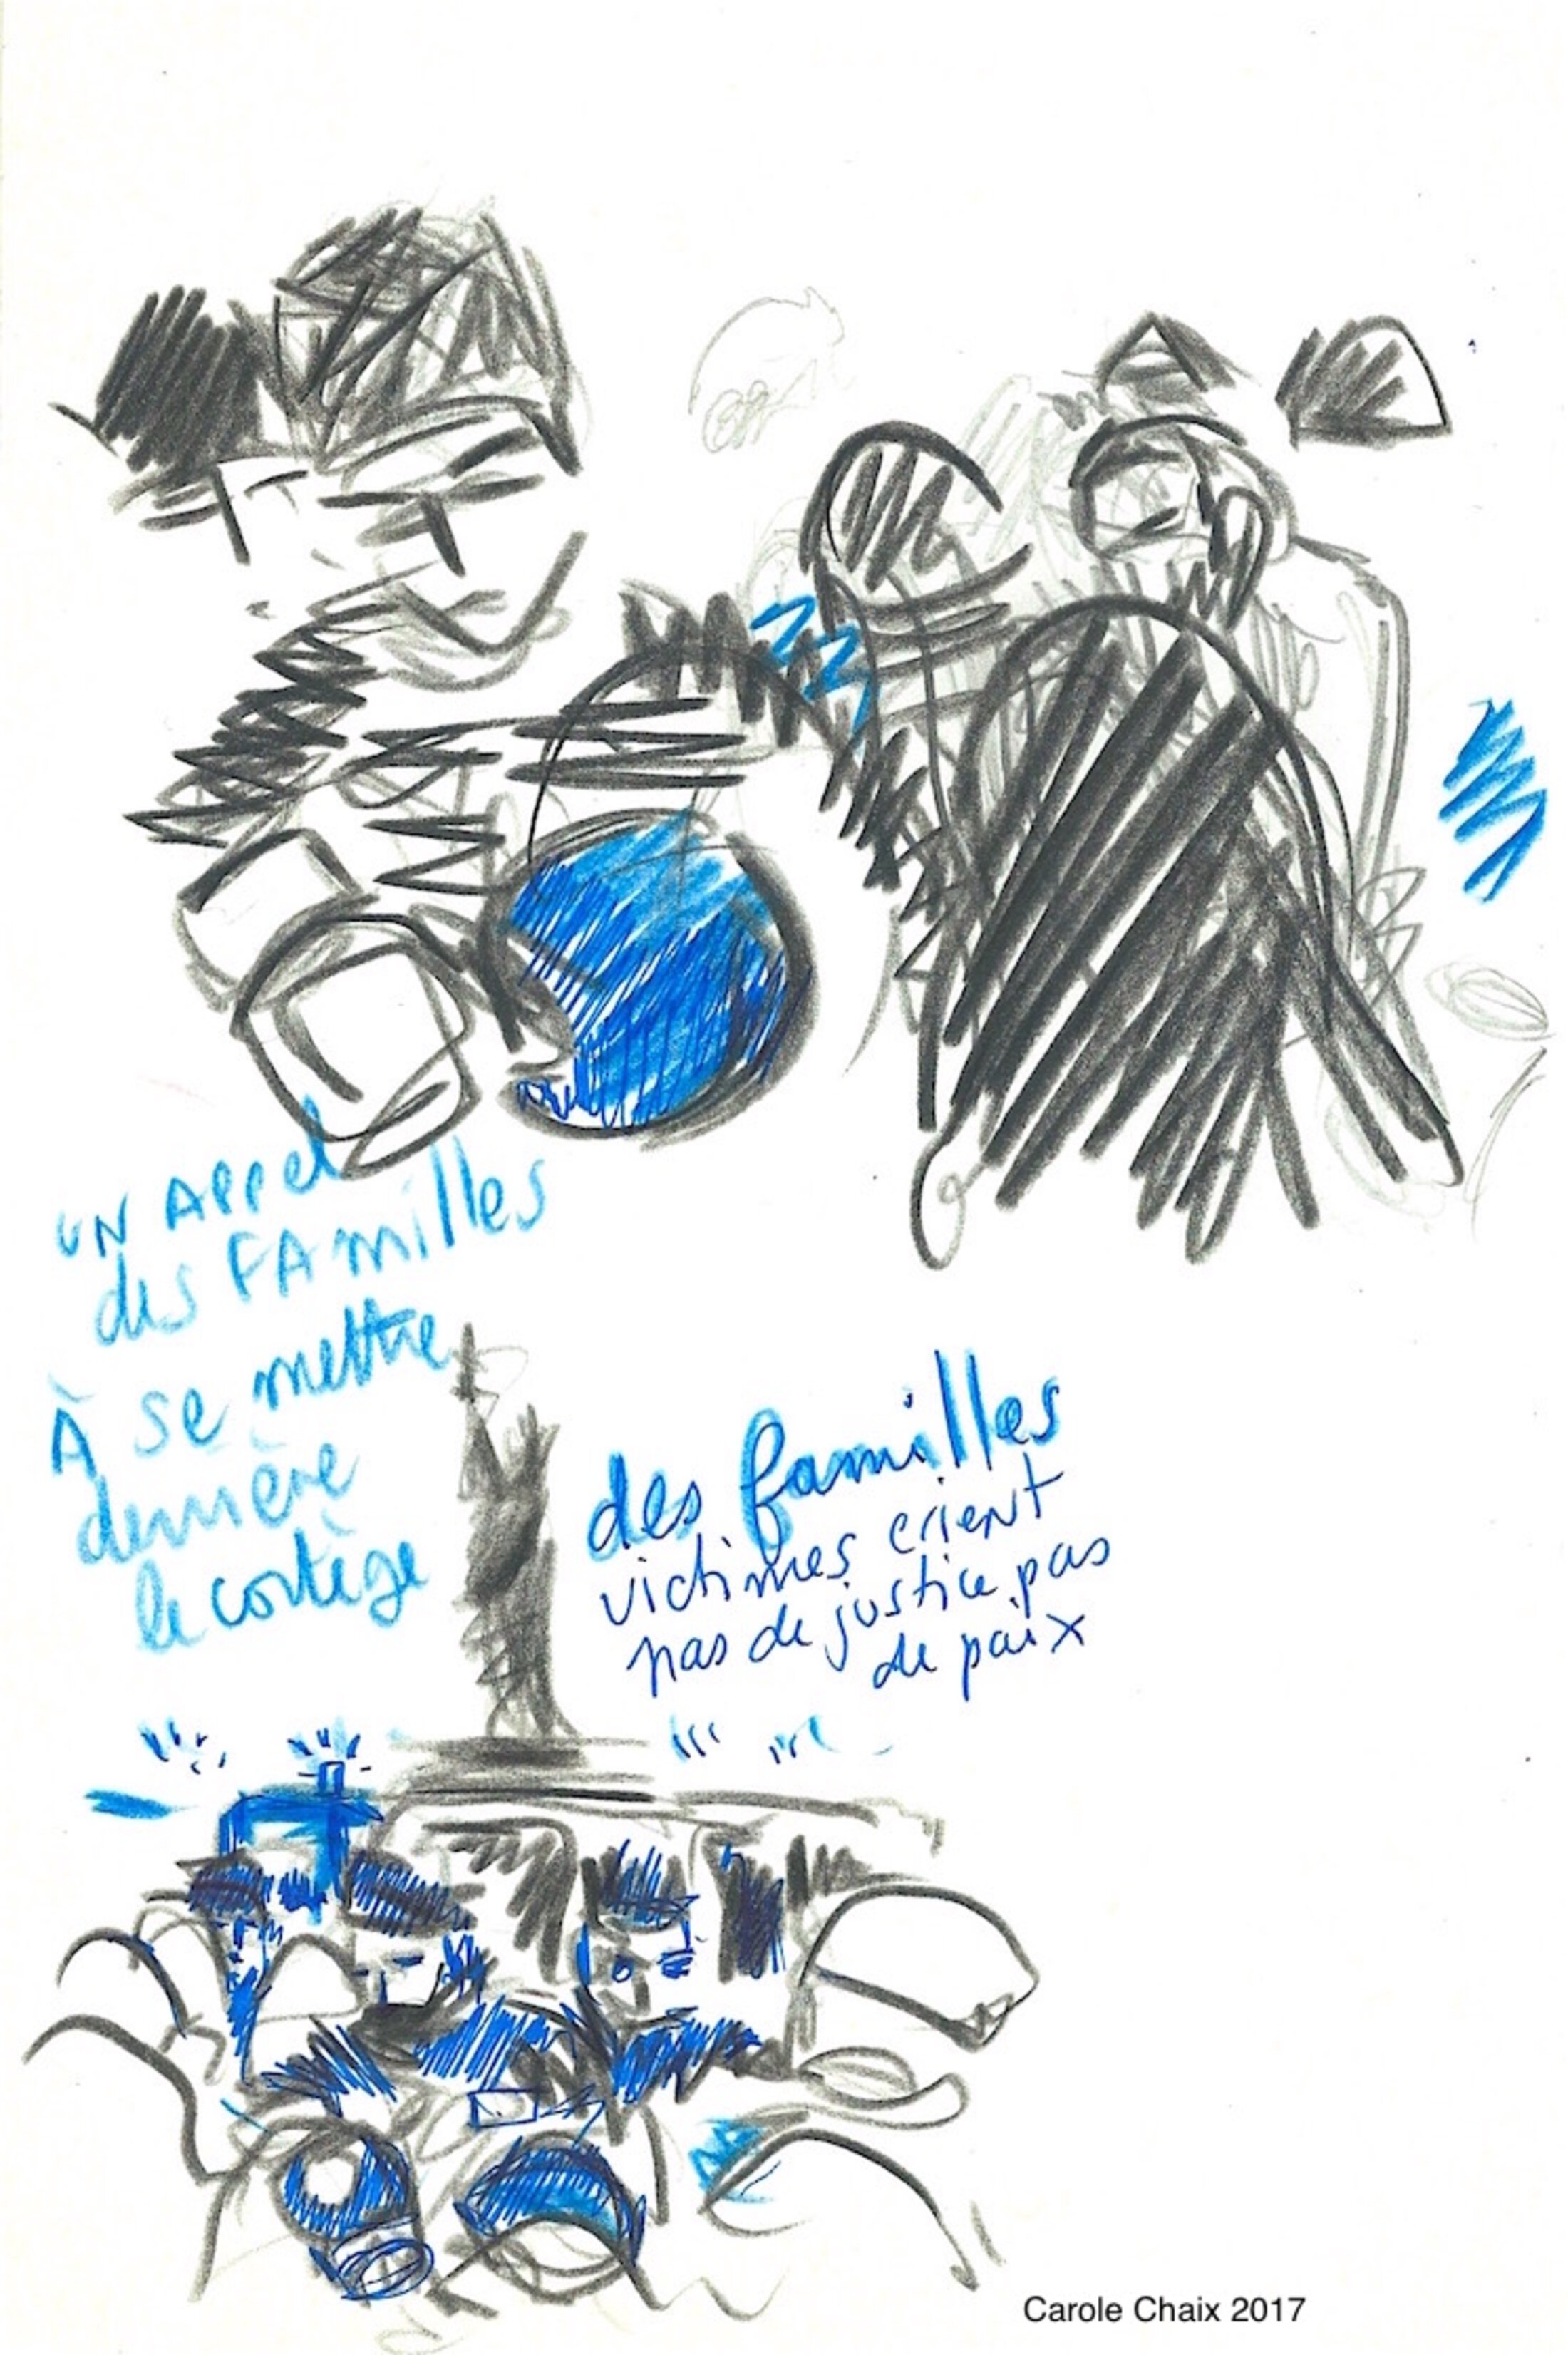 UN Appel
des FAmilles
À se mettre
derrière
le cortège
des familles
victimes crient
pas de justice pas
de paix
Carole Chaix 2017